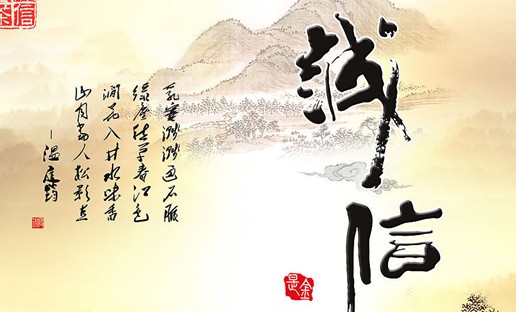 诚信
是金
乳窦溅溅通石脉
绿尘愁草春江色
涧花入井水味香
山月当人松影直
—温庭筠